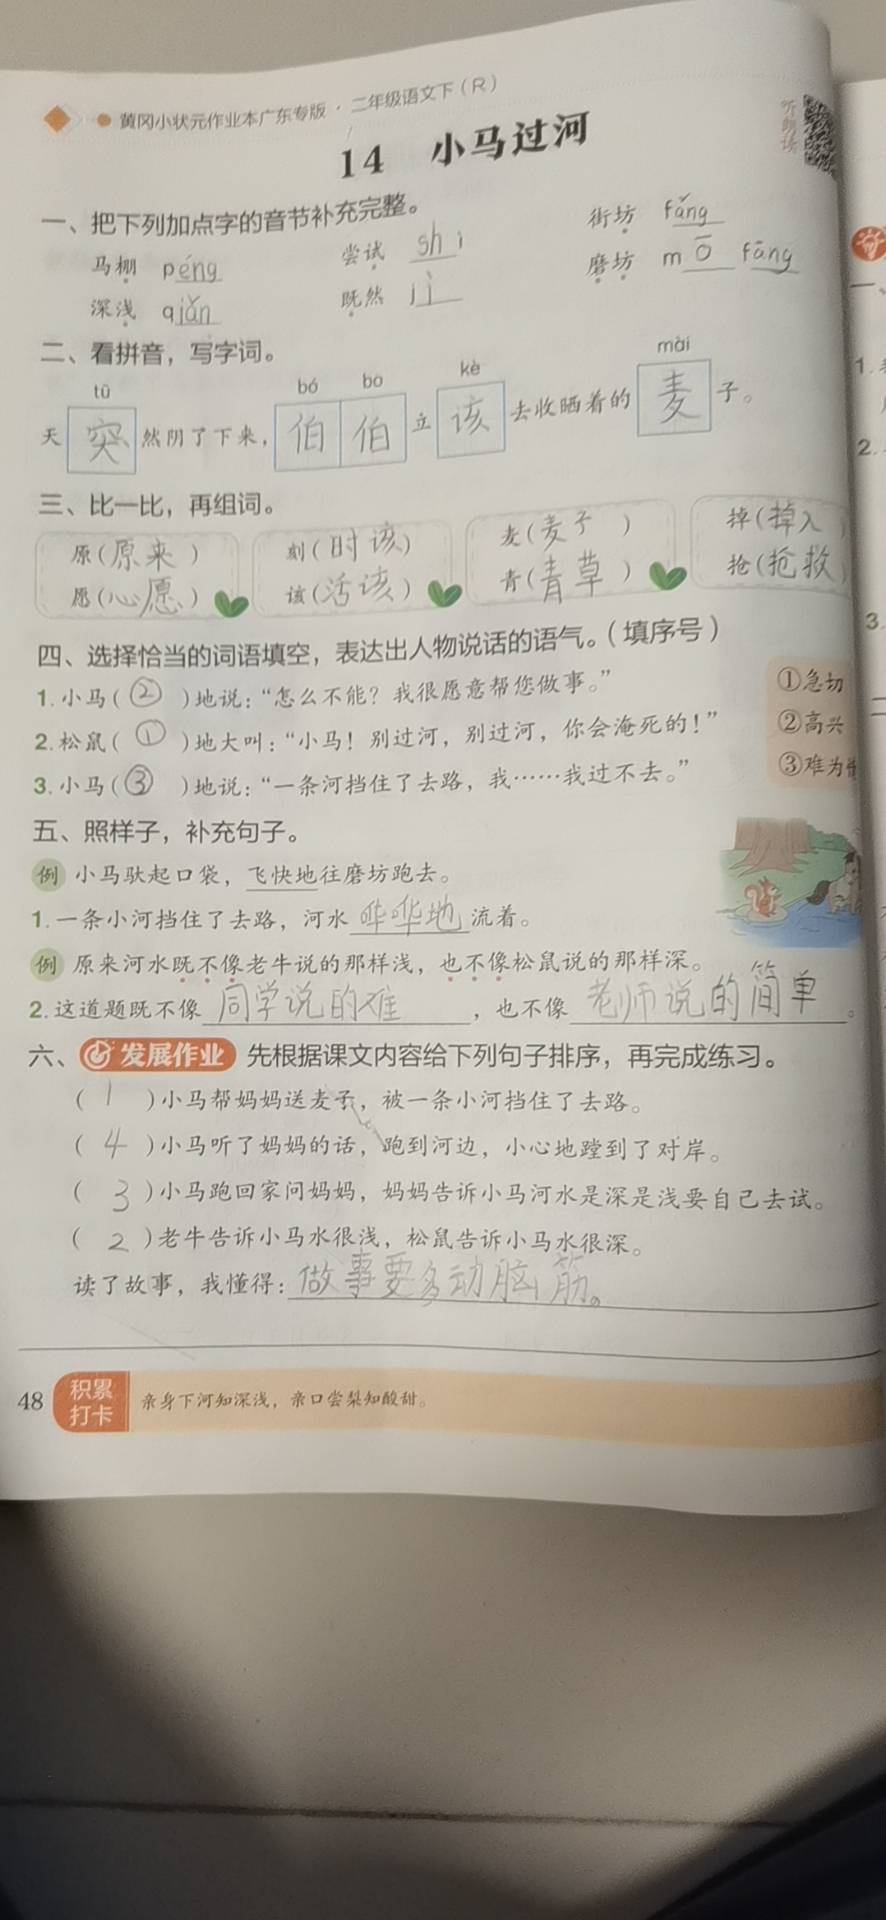 黄冈小状元作业本广东专版·二年级语文下（R）
听朗读
14 小马过河
一、把下列加点字的音节补充完整。
马棚 péng 尝试 shi 街坊 fǎng
深浅 qiǎn 既然 jì 磨坊 mō fāng
二、看拼音，写字词。
tū bó bo kè mài
天突然阴了下来，伯伯立该去收晒着的麦子。
三、比一比，再组词。
原（原来） 刻（时该） 麦（麦子） 掉（掉入）
愿（心愿） 该（活该） 青（青草） 抢（抢救）
四、选择恰当的词语填空，表达出人物说话的语气。（填序号）
1.小马（②）地说：“怎么不能？我很愿意帮您做事。”
2.松鼠（①）地大叫：“小马！别过河，别过河，你会淹死的！”
3.小马（③）地说：“一条河挡住了去路，我……我过不去。”
①急切
②高兴
③难为情
五、照样子，补充句子。
例 小马驮起口袋，飞快地往磨坊跑去。
1.一条小河挡住了去路，河水哗哗地流着。
例 原来河水既不像老牛说的那样浅，也不像松鼠说的那样深。
2.这道题既不像同学说的难，也不像老师说的简单。
六、发展作业 先根据课文内容给下列句子排序，再完成练习。
（1）小马帮妈妈送麦子，被一条小河挡住了去路。
（4）小马听了妈妈的话，跑到河边，小心地蹚到了对岸。
（3）小马跑回家问妈妈，妈妈告诉小马河水是深是浅要自己去试。
（2）老牛告诉小马水很浅，松鼠告诉小马水很深。
读了故事，我懂得：做事要多动脑筋。
48 积累打卡 亲身下河知深浅，亲口尝梨知酸甜。